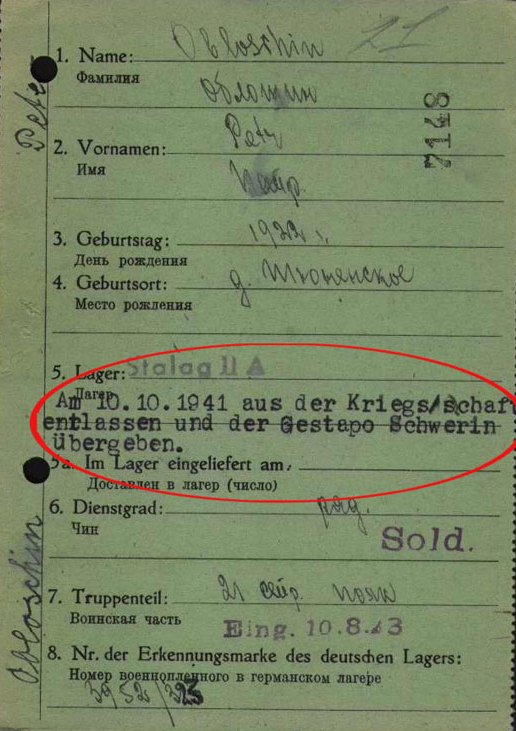 Obloschin 21
1. Name:
Фамилия
Облошин
Petr
2. Vornamen:
Имя
Петр
7148
Petr
3. Geburtstag: 1922 г.
День рождения
4. Geburtsort:
Место рождения
д.
5. Lager: Stalag II A
Лагерь
Am 10.10.1941 aus der Kriegs/schaft
entlassen und der Gestapo Schwerin
übergeben.
5a. Im Lager eingeliefert am:
Доставлен в лагерь (число)
6. Dienstgrad: ряд.
Чин
Sold.
7. Truppenteil: 21 полк
Воинская часть
Eing. 10.8.43
8. Nr. der Erkennungsmarke des deutschen Lagers:
Номер военнопленного в германском лагере
Obloschin